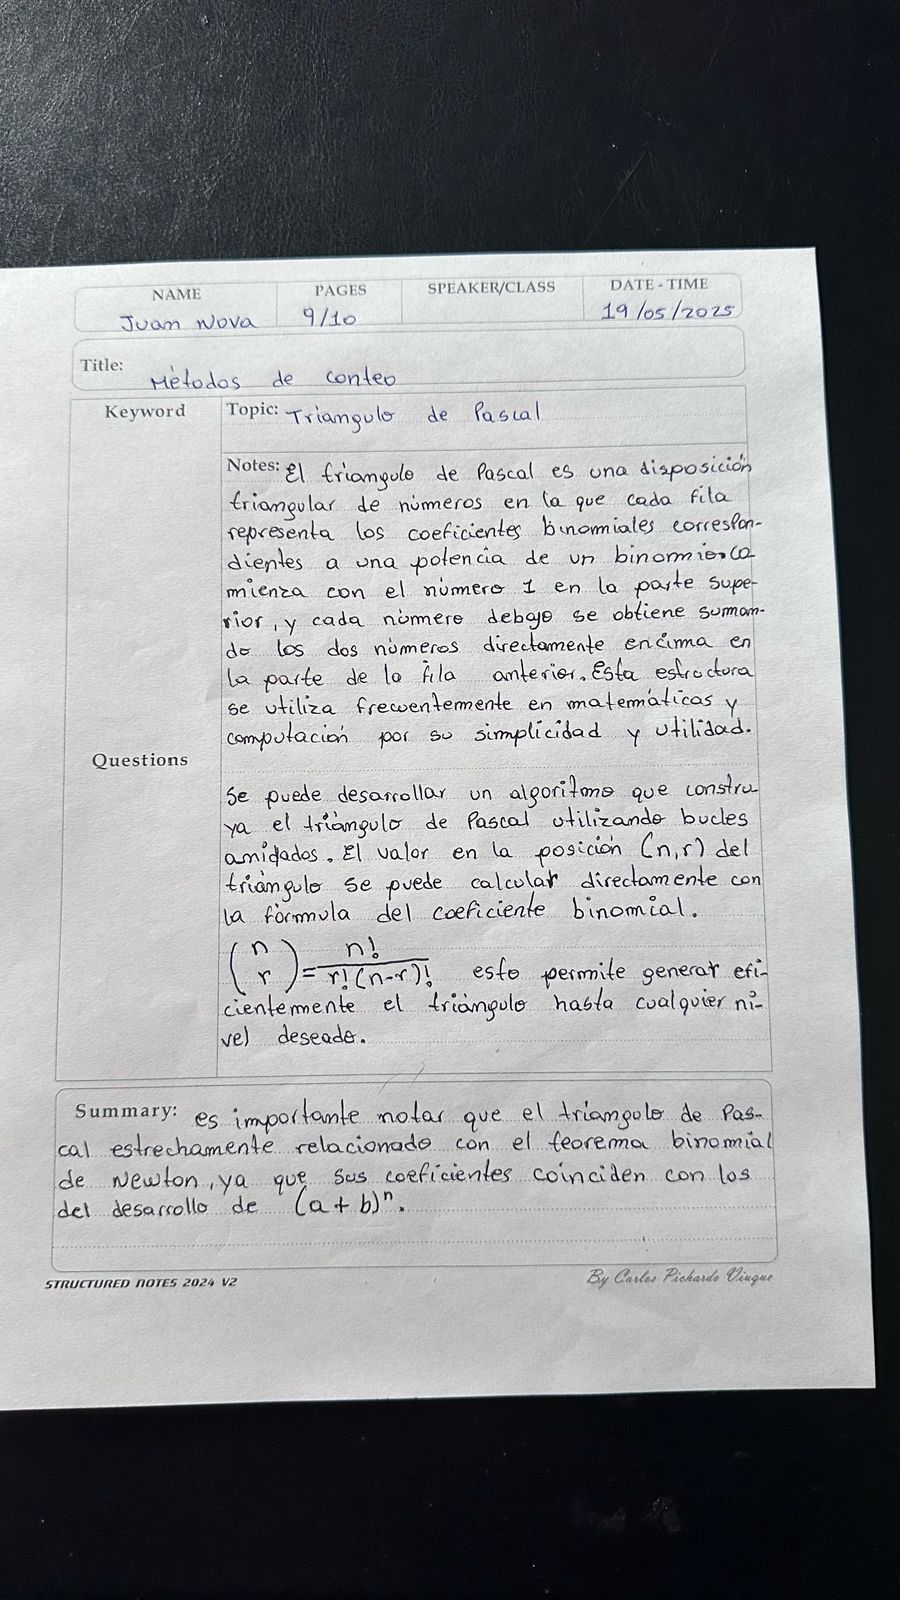 NAME PAGES SPEAKER/CLASS DATE - TIME
Juan Nova 9/10 19/05/2025
Title: Métodos de conteo
Keyword Topic: Triangulo de Pascal
Notes: El triangulo de Pascal es una disposición
triangular de números en la que cada fila
representa los coeficientes binomiales correspon-
dientes a una potencia de un binomio.co
mienza con el número 1 en la parte supe-
rior, y cada número debajo se obtiene suman-
do los dos números directamente encima en
la parte de la fila anterior. Esta estructura
se utiliza frecuentemente en matemáticas y
computación por su simplicidad y utilidad.
Questions
Se puede desarrollar un algoritmo que constru-
ya el triángulo de Pascal utilizando bucles
anidados. El valor en la posición (n,r) del
triángulo se puede calcular directamente con
la fórmula del coeficiente binomial.
(n r) = n! / r!(n-r)! esto permite generar efi-
cientemente el triángulo hasta cualquier ni-
vel deseado.
Summary: es importante notar que el triangulo de Pas-
cal estrechamente relacionado con el teorema binomial
de Newton, ya que sus coeficientes coinciden con los
del desarrollo de (a + b)ⁿ.
STRUCTURED NOTES 2024 V2 By Carlos Pichardo Viuque